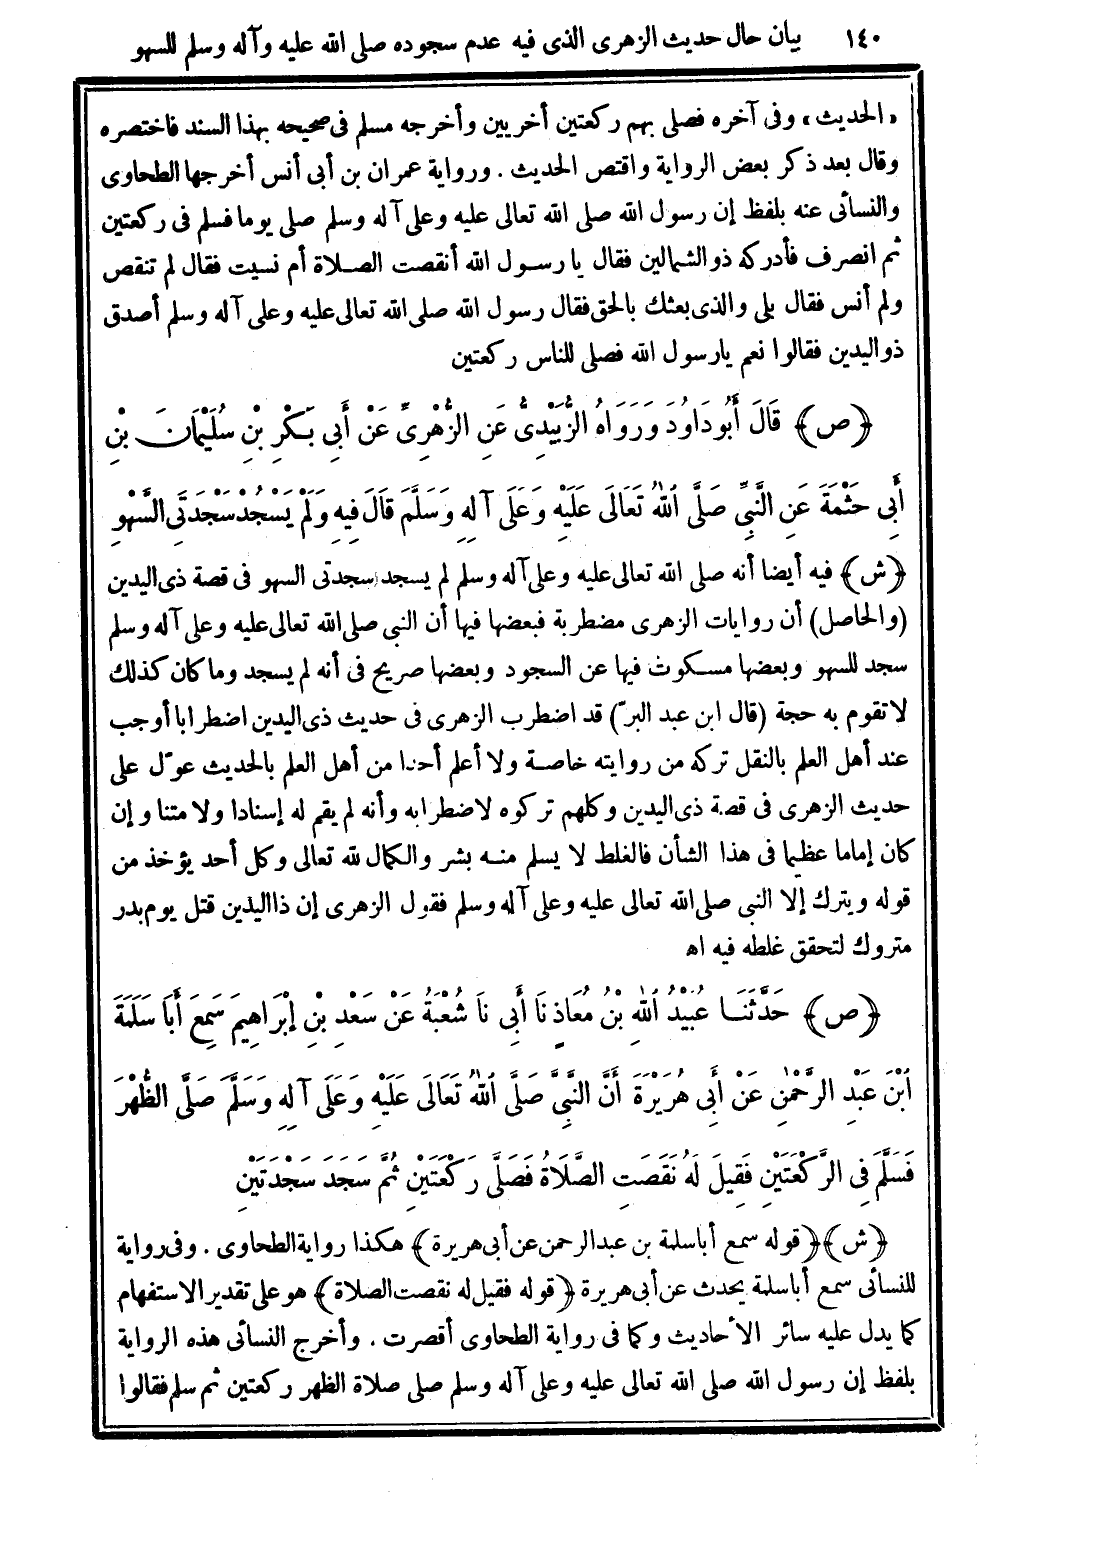 ١٤٠ بيان حال حديث الزهرى الذى فيه عدم سجوده صلى الله عليه وآله وسلم للسهو
«الحديث» وفى آخره فصلى بهم ركعتين أخريين وأخرجه مسلم فى صحيحه بهذا السند فاختصره
وقال بعد ذكر بعض الرواية واقتص الحديث . ورواية عمران بن أبى أنس أخرجها الطحاوى
والنسائى عنه بلفظ إن رسول الله صلى الله تعالى عليه وعلى آله وسلم صلى يوما فسلم فى ركعتين
ثم انصرف فأدركه ذو الشمالين فقال يا رسول الله أنقصت الصلاة أم نسيت فقال لم تنقص
ولم أنس فقال بلى والذى بعثك بالحق فقال رسول الله صلى الله تعالى عليه وعلى آله وسلم أصدق
ذو اليدين فقالوا نعم يا رسول الله فصلى للناس ركعتين
﴿ص﴾ قَالَ أَبُو دَاوُدَ وَرَوَاهُ الزُّبَيْدِىُّ عَنِ الزُّهْرِىِّ عَنْ أَبِى بَكْرِ بْنِ سُلَيْمَانَ بْنِ
أَبِى حَثْمَةَ عَنِ النَّبِىِّ صَلَّى اللهُ تَعَالَى عَلَيْهِ وَعَلَى آلِهِ وَسَلَّمَ قَالَ فِيهِ وَلَمْ يَسْجُدْ سَجْدَتَىِ السَّهْوِ
﴿ش﴾ فيه أيضا أنه صلى الله تعالى عليه وعلى آله وسلم لم يسجد سجدتى السهو فى قصة ذى اليدين
(والحاصل) أن روايات الزهرى مضطربة فبعضها فيها أن النبى صلى الله تعالى عليه وعلى آله وسلم
سجد للسهو وبعضها مسكوت فيها عن السجود وبعضها صريح فى أنه لم يسجد وما كان كذلك
لا تقوم به حجة (قال ابن عبد البرّ) قد اضطرب الزهرى فى حديث ذى اليدين اضطرابا أوجب
عند أهل العلم بالنقل تركه من روايته خاصة ولا أعلم أحدا من أهل العلم بالحديث عوّل على
حديث الزهرى فى قصة ذى اليدين وكلهم تركوه لاضطرابه وأنه لم يقم له إسنادا ولا متنا وإن
كان إماما عظيما فى هذا الشأن فالغلط لا يسلم منه بشر والكمال لله تعالى وكل أحد يؤخذ من
قوله ويترك إلا النبى صلى الله تعالى عليه وعلى آله وسلم فقول الزهرى إن ذا اليدين قتل يوم بدر
متروك لتحقق غلطه فيه اه
﴿ص﴾ حَدَّثَنَا عُبَيْدُ اللهِ بْنُ مُعَاذٍ نَا أَبِى نَا شُعْبَةُ عَنْ سَعْدِ بْنِ إِبْرَاهِيمَ سَمِعَ أَبَا سَلَمَةَ
ابْنَ عَبْدِ الرَّحْمٰنِ عَنْ أَبِى هُرَيْرَةَ أَنَّ النَّبِىَّ صَلَّى اللهُ تَعَالَى عَلَيْهِ وَعَلَى آلِهِ وَسَلَّمَ صَلَّى الظُّهْرَ
فَسَلَّمَ فِى الرَّكْعَتَيْنِ فَقِيلَ لَهُ نَقَصَتِ الصَّلَاةُ فَصَلَّى رَكْعَتَيْنِ ثُمَّ سَجَدَ سَجْدَتَيْنِ
﴿ش﴾ ﴿قوله سمع أبا سلمة بن عبد الرحمن عن أبى هريرة﴾ هكذا رواية الطحاوى . وفى رواية
للنسائى سمع أبا سلمة يحدث عن أبى هريرة ﴿قوله فقيل له نقصت الصلاة﴾ هو على تقدير الاستفهام
كما يدل عليه سائر الأحاديث وكما فى رواية الطحاوى أقصرت . وأخرج النسائى هذه الرواية
بلفظ إن رسول الله صلى الله تعالى عليه وعلى آله وسلم صلى صلاة الظهر ركعتين ثم سلم فقالوا